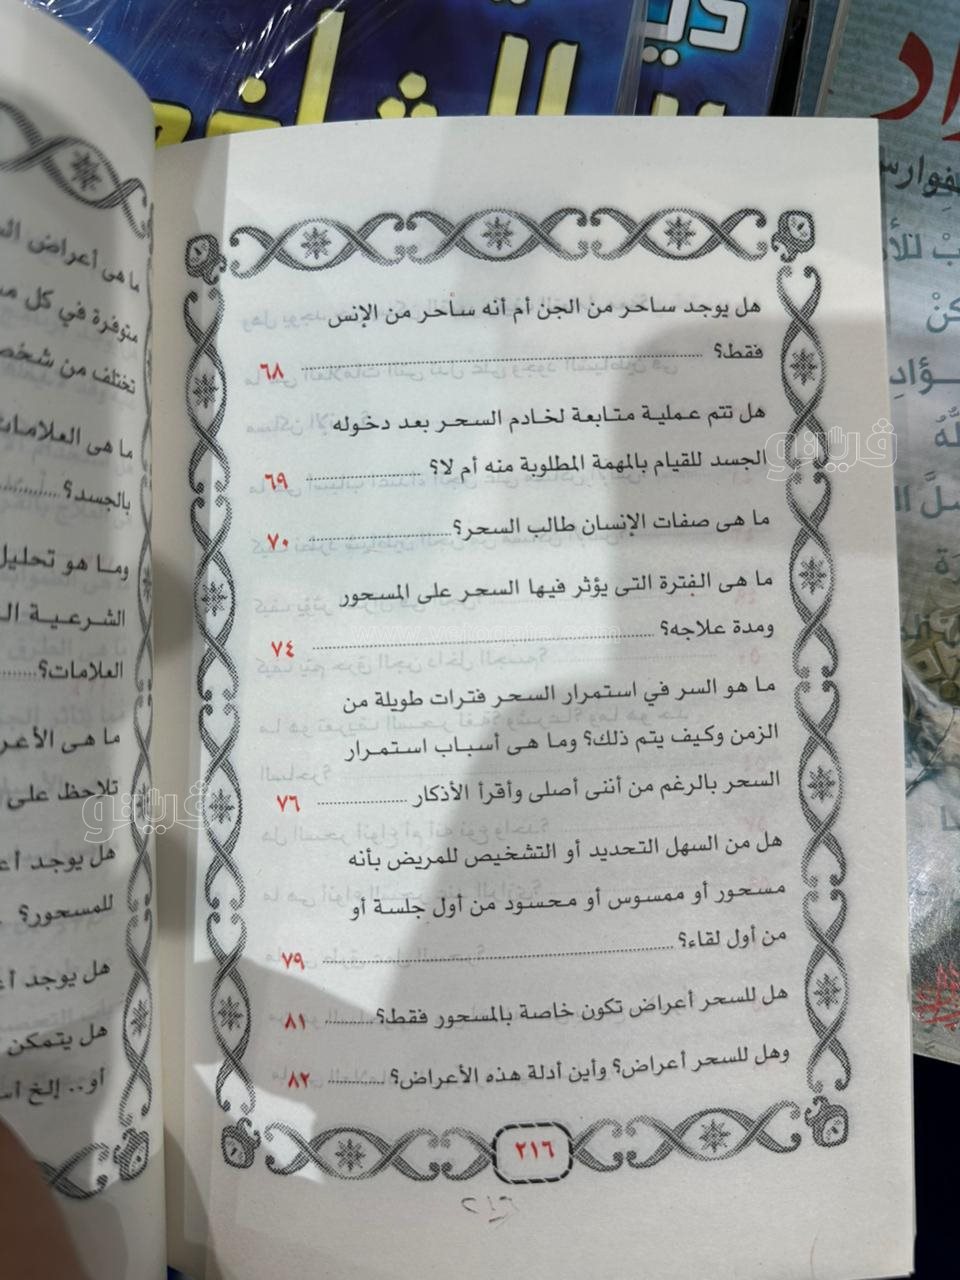 هل يوجد ساحر من الجن أم أنه ساحر من الإنس
فقط؟ ........ ٦٨
هل تتم عملية متابعة لخادم السحر بعد دخوله
الجسد للقيام بالمهمة المطلوبة منه أم لا؟ ........ ٦٩
ما هى صفات الإنسان طالب السحر؟ ........ ٧٠
ما هى الفترة التى يؤثر فيها السحر على المسحور
ومدة علاجه؟ ........ ٧٤
ما هو السر في استمرار السحر فترات طويلة من
الزمن وكيف يتم ذلك؟ وما هى أسباب استمرار
السحر بالرغم من أننى أصلى وأقرأ الأذكار ........ ٧٦
هل من السهل التحديد أو التشخيص للمريض بأنه
مسحور أو ممسوس أو محسود من أول جلسة أو
من أول لقاء؟ ........ ٧٩
هل للسحر أعراض تكون خاصة بالمسحور فقط؟ ........ ٨١
وهل للسحر أعراض؟ وأين أدلة هذه الأعراض؟ ........ ٨٢
٢١٦
ما هى أعراض
متوفرة في كل
تختلف من
ما هى العلامات
بالجسد؟ ........
وما هو تحليل
الشرعية
العلامات؟ ........
ما هى
تلاحظ على
هل يوجد
للمسحور؟
هل يوجد
هل يتمكن
أو.. إلخ
ڤيتو
ڤيتو
www.vetogate.com